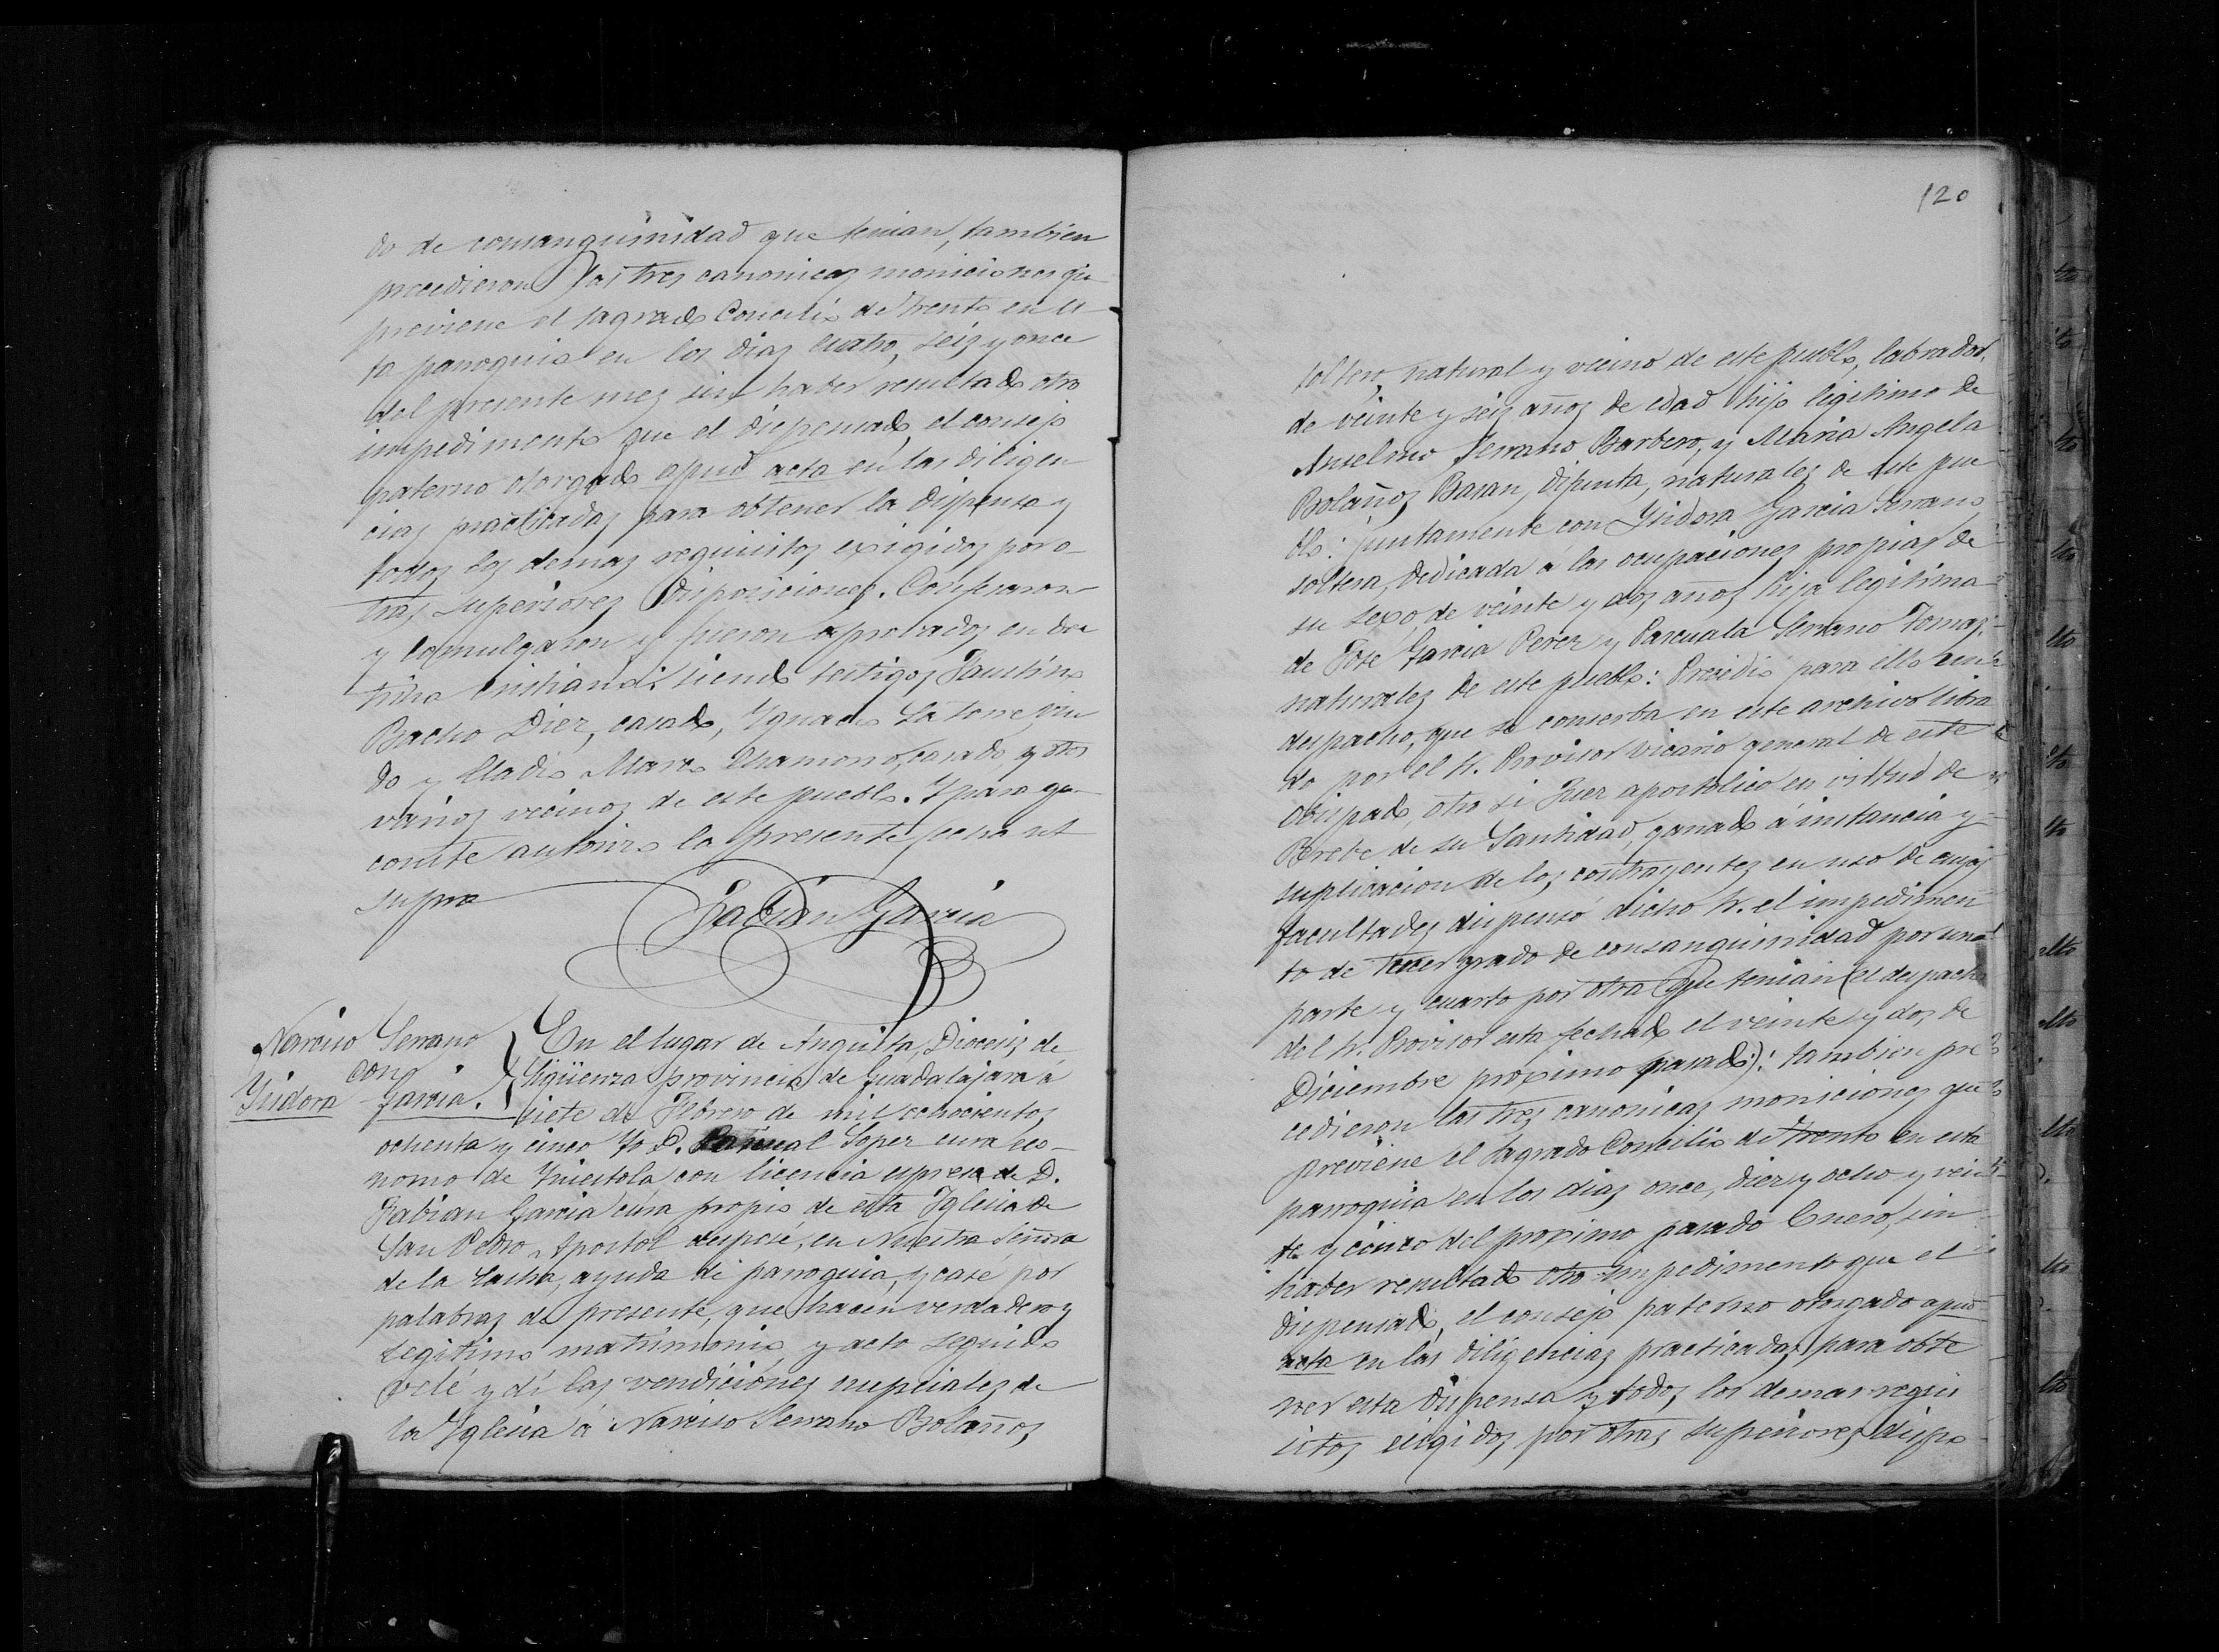 do de consanguinidad que tenian, tambien
precedieron las tres canonicas moniciones qe
previene el sagrado Concilio de Trento en es
ta parroquia en los dias cuatro, seis y once
del presente mes sin haber resultado otro
impedimento que el dispensado, el consejo
paterno otorgado apud acta en las diligen
cias practicadas para obtener la dispensa y
todos los demas requisitos exigidos por o-
tras superiores disposiciones. Confesaron
y comulgaron y fueron aprobados en doc
trina cristiana: siendo testigos Faustino
Bacho Diez, casado, Ygnacio La torre, viu
do y Eladio casado, y otros
varios vecinos de este pueblo. Y para qe
conste autorizo la presente fecha ut
supra
Fabian Garcia
Narciso Serrano
con
Ysidora Garcia.
En el lugar de Anguita, Diocesis de
Sigüenza provincia de Guadalajara a
siete de Febrero de mil ochocientos
ochenta y cinco Yo D. Pascual Loper cura eco-
nomo de Yniestola con licencia espresa de D.
Fabian Garcia cura propio de esta Yglesia de
San Pedro Apostol desposé, en Nuestra Señora
de la Lastra, ayuda de parroquia, y casé por
palabras de presente, que hacen verdadero y
legitimo matrimonio y acto seguido
velé y dí las vendiciones nupciales de
la Yglesia á Narciso Serrano Bolaños
120
soltero, natural y vecino de este pueblo, labrador,
de veinte y seis años de edad hijo legitimo de
Anselmo Serrano Barbero, y Maria Angela
Bolaños Baran, difunta, naturales de este pue
blo: juntamente con Ysidora Garcia Serrano
soltera, dedicada á las ocupaciones propias de
su sexo, de veinte y dos años hija legitima
de José Garcia Perez y Pascuala Serrano Tomas,
naturales de este pueblo: Precedió para ello un
despacho, que se conserba en este archivo libra
do por el Sr. Provisor Vicario general de este
Obispado, otro si Juez apostolico en virtud de
Brebe de su Santidad, ganado á instancia y
suplicacion de los contrayentes en uso de cuyas
facultades dispensó dicho Sr. el impedimen
to de tercer grado de consanguinidad por una
parte y cuarto por otra que tenian (el despacho
del Sr. Provisor esta fechado el veinte y dos de
Diciembre proximo pasado): tambien pre
cedieron las tres canonicas moniciones que
previene el Sagrado Concilio de Trento en esta
parroquia en los dias once, diez y ocho y vein
te y cinco del proximo pasado Enero, sin
haber resultado otro impedimento que el
dispensado, el consejo paterno otorgado apud
acta en las diligencias practicadas para obte
ner esta dispensa y todos los demas requi
sitos exigidos por otras superiores dispo